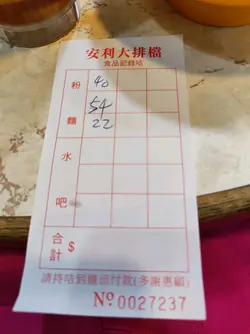 安利大排檔
食品記錄咭
粉 40
麵 54
22
水
吧
合計 $
請持咭到櫃面付款(多謝惠顧)
No 0027237